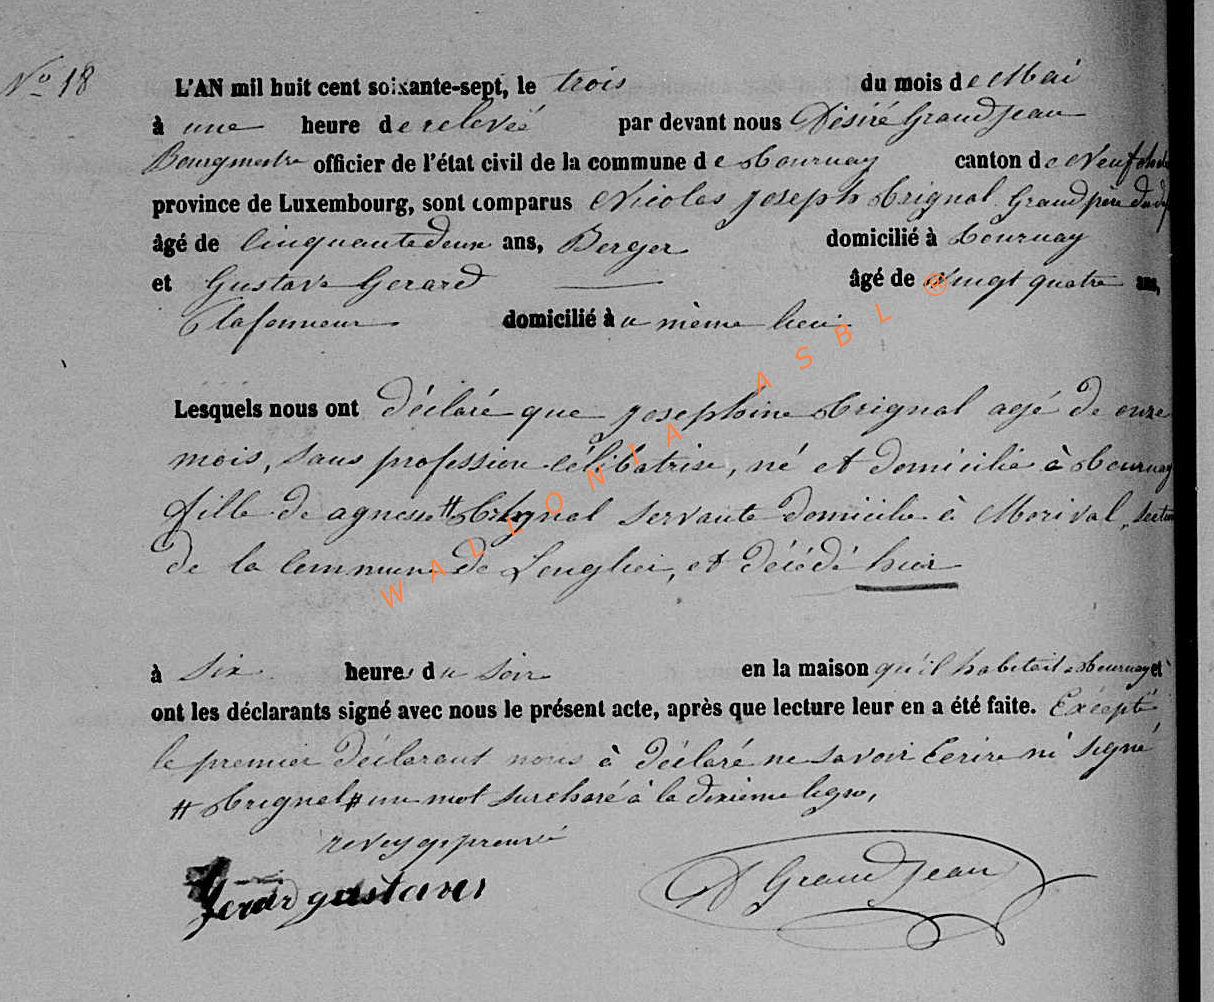 No 18
L'AN mil huit cent soixante-sept, le trois du mois de Mai
à une heure de relevée par devant nous Désiré Grandjean
Bourgmestre officier de l'état civil de la commune de Tournay canton de Neufchat
province de Luxembourg, sont comparus Nicolas Joseph Trignol Grand père du
âgé de Cinquante deux ans, Berger domicilié à Tournay
et Gustave Gerard âgé de vingt quatre ans,
Plafonneur domicilié au même lieu
Lesquels nous ont déclaré que Josephine Trignol agé de onze
mois, sans profession célibatrise, né et domicilié à Tournay
fille de agnesse # Trignol servante domicilié à Morival, section
de la Commune de Longlier, et décédé hier
à six heures du soir en la maison qu'il habitait a Tournay et
ont les déclarants signé avec nous le présent acte, après que lecture leur en a été faite. Excepté
le premier déclarant nous à déclaré ne savoir Ecrire ni signé
# Trignol # un mot surcharé à la dixieme ligne,
Gerard gustave
D Grandjean
WALLONIA ASBL ®